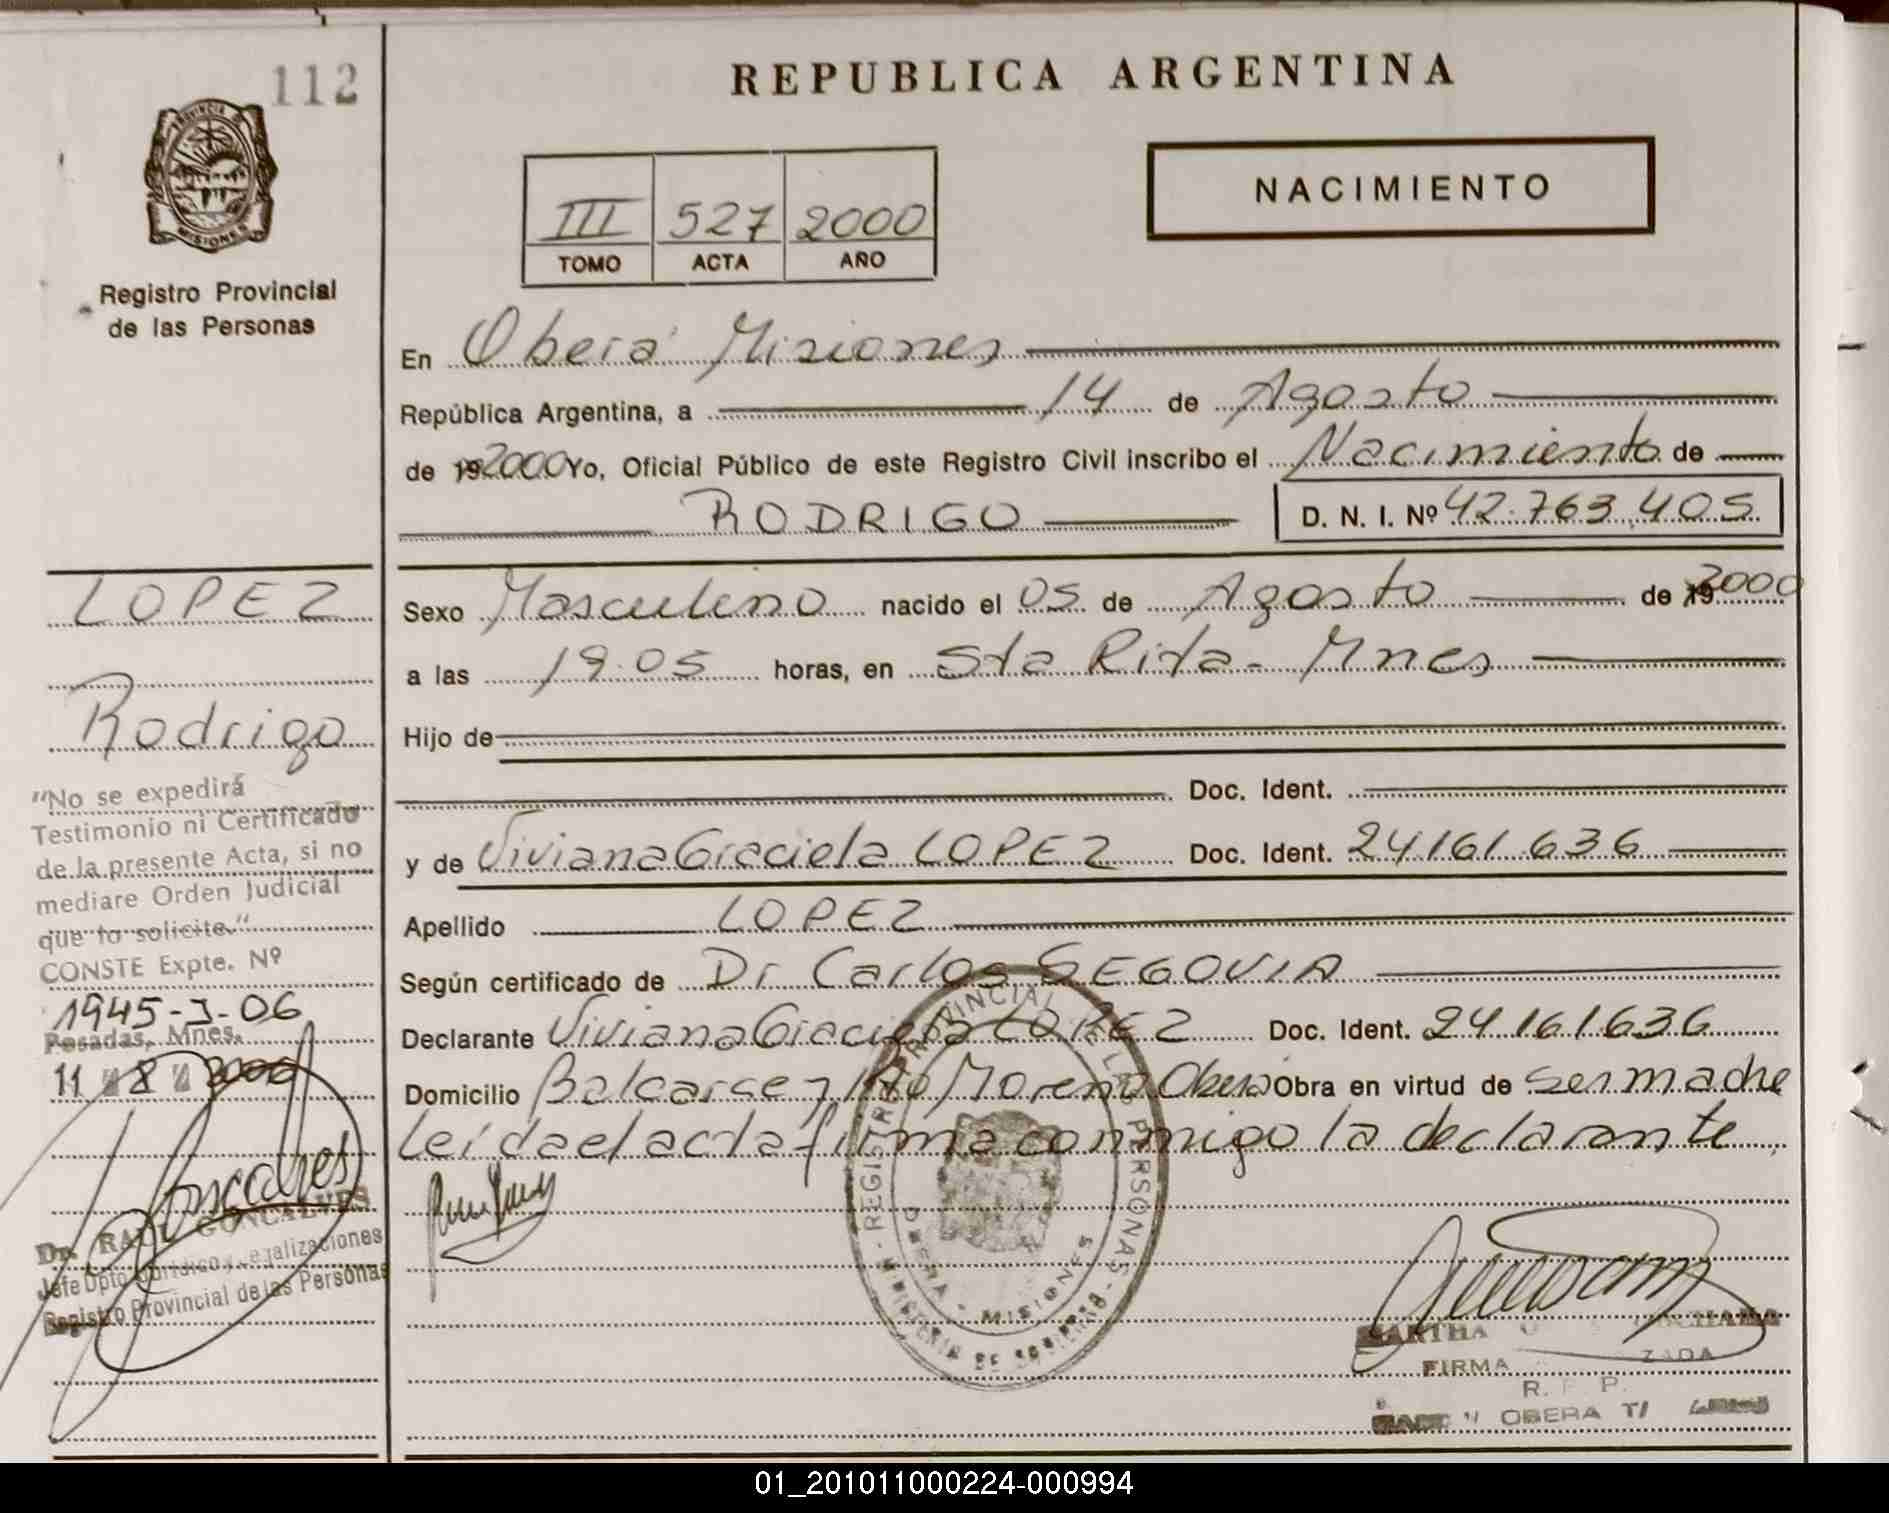 112
PROVINCIA D
MISIONES
Registro Provincial
de las Personas
REPUBLICA ARGENTINA
NACIMIENTO
III 527 2000
TOMO ACTA AÑO
En Oberá Misiones
República Argentina, a 14 de Agosto
de 192000 Yo, Oficial Público de este Registro Civil inscribo el Nacimiento de
RODRIGO D. N. I. Nº 42.763.405
LOPEZ
Rodrigo
Sexo Masculino nacido el 05 de Agosto de 192000
a las 19.05 horas, en Sta Rita - Mnes
Hijo de
Doc. Ident.
y de Viviana Graciela LOPEZ Doc. Ident. 24.161.636
Apellido LOPEZ
Según certificado de Dr Carlos SEGOVIA
Declarante Viviana Graciela LOPEZ Doc. Ident. 24.161.636
Domicilio Balcarse y Moreno Oberá Obra en virtud de ser madre
Leída el acta firma conmigo la declarante
"No se expedirá
Testimonio ni Certificado
de la presente Acta, si no
mediare Orden Judicial
que lo solicite."
CONSTE Expte. Nº
1945-J-06
Posadas, Mnes.
11 8 2000
Dr. RAUL GONCALVES
Jefe Dpto. Jurídico y Legalizaciones
Registro Provincial de las Personas
REGISTRO PROVINCIAL DE LAS PERSONAS - MINISTERIO DE GOBIERNO
OBERA - MISIONES
MARTHA
FIRMA
R. P. P.
OBERA
01_201011000224-000994